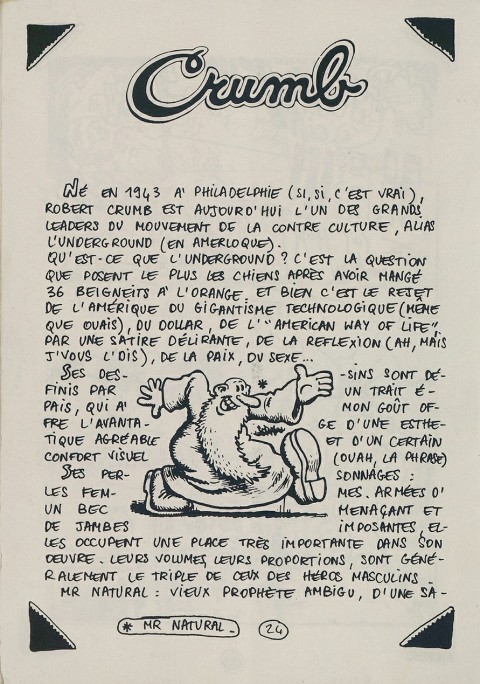 Crumb
NÉ EN 1943 A' PHILADELPHIE (SI, SI, C'EST VRAI),
ROBERT CRUMB EST AUJOURD'HUI L'UN DES GRANDS
LEADERS DU MOUVEMENT DE LA CONTRE CULTURE, ALIAS
L'UNDERGROUND (EN AMERLOQUE).
QU'EST-CE QUE L'UNDERGROUND ? C'EST LA QUESTION
QUE POSENT LE PLUS LES CHIENS APRÈS AVOIR MANGÉ
36 BEIGNEITS A' L'ORANGE. ET BIEN C'EST LE REJET
DE L'AMÉRIQUE DU GIGANTISME TECHNOLOGIQUE (MEME
QUE OUAIS), DU DOLLAR, DE L'"AMERICAN WAY OF LIFE",
PAR UNE SATIRE DÉLIRANTE, DE LA REFLEXION (AH, MAIS
J'VOUS L'DIS), DE LA PAIX, DU SEXE...
SES DES- -SINS SONT DÉ-
FINIS PAR UN TRAIT É-
PAIS, QUI A' MON GOÛT OF-
FRE L'AVANTA- GE D'UNE ESTHE-
TIQUE AGRÉABLE ET D'UN CERTAIN
CONFORT VISUEL (OUAH, LA PHRASE)
SES PER- SONNAGES :
LES FEM- MES. ARMÉES D'
UN BEC MENAÇANT ET
DE JAMBES IMPOSANTES, EL-
LES OCCUPENT UNE PLACE TRÈS IMPORTANTE DANS SON
OEUVRE. LEURS VOLUMES, LEURS PROPORTIONS, SONT GÉNÉ-
RALEMENT LE TRIPLE DE CEUX DES HÉROS MASCULINS.
MR NATURAL : VIEUX PROPHÈTE AMBIGU, D'UNE SA-
* MR NATURAL. 24